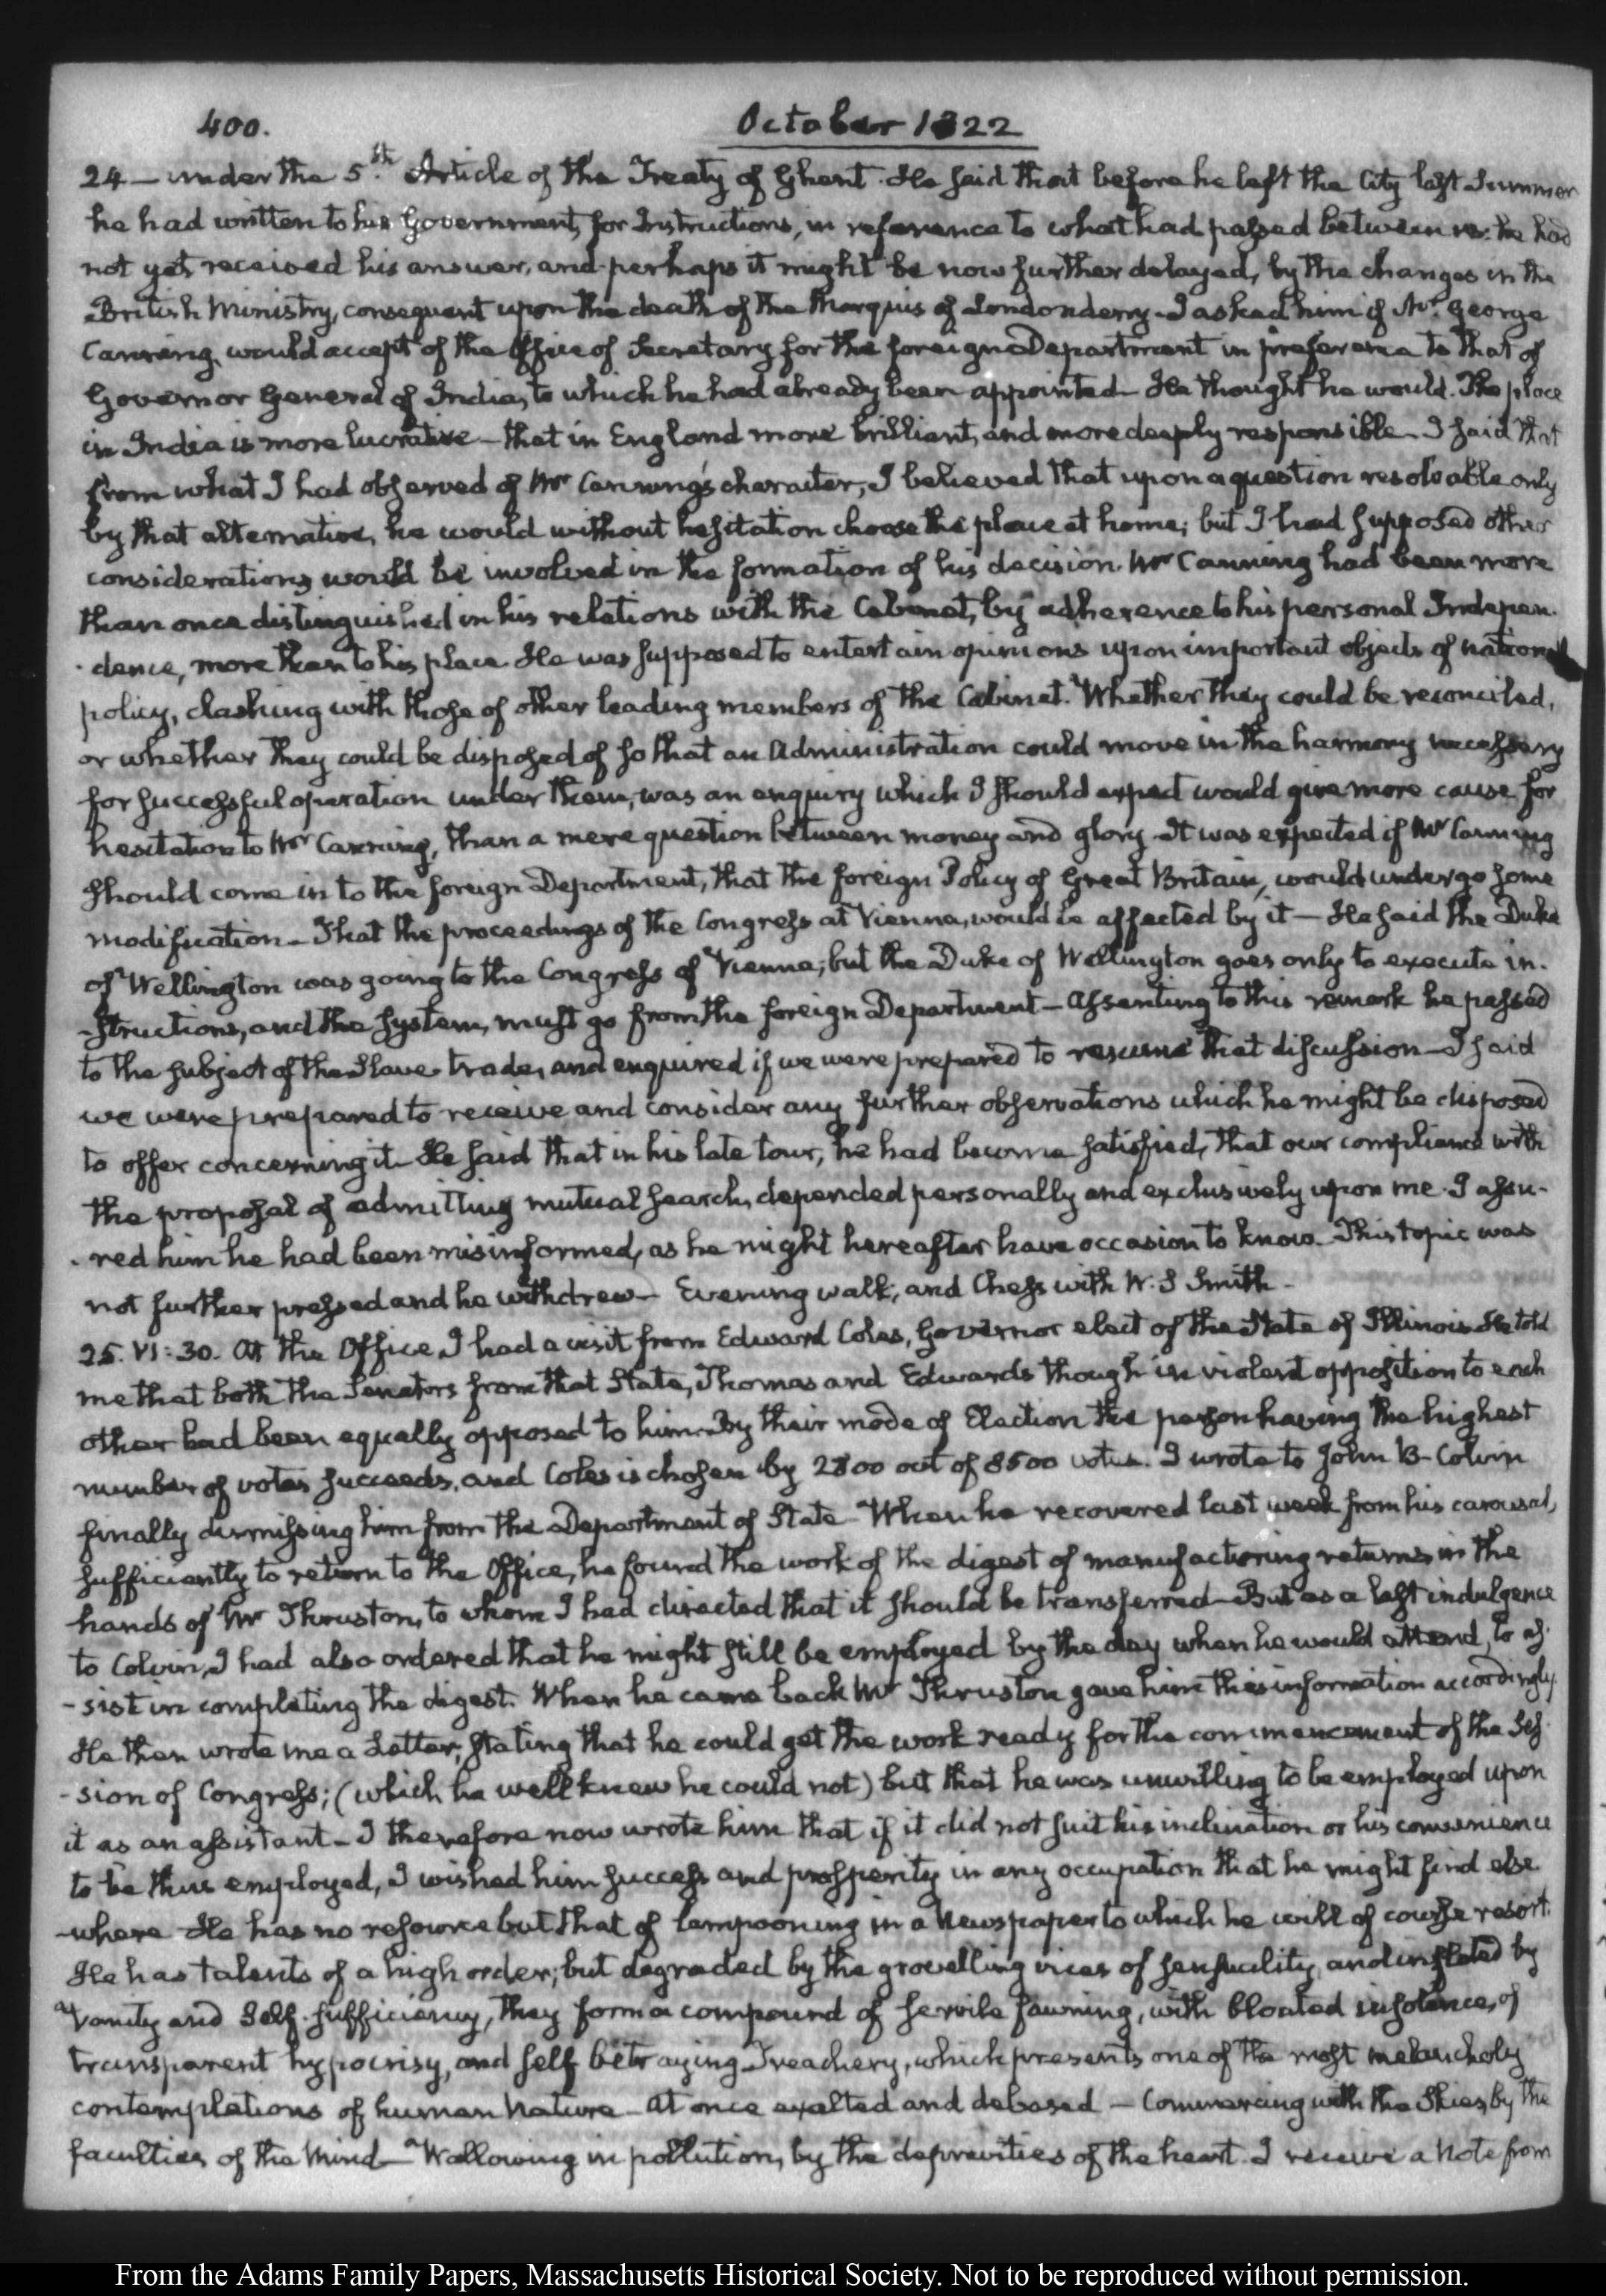 400.
October 1822
24 — under the 5th. Article of the Treaty of Ghent. He said that before he left the City last Summer
he had written to his Government, for Instructions, in reference to what had passed between us. he had
not yet received his answer, and perhaps it might be now further delayed, by the changes in the
British Ministry, consequent upon the death of the Marquis of Londonderry. I asked him if Mr. George
Canning, would accept of the Office of Secretary for the foreign Department in preference to that of
Governor General of India, to which he had already been appointed— He thought he would. The place
in India is more lucrative — that in England more brilliant, and more deeply responsible. I said that
from what I had observed of Mr Canning's character, I believed that upon a question resolvable only
by that alternative, he would without hesitation choose the place at home; but I had supposed other
considerations would be involved in the formation of his decision. Mr Canning had been more
than once distinguished in his relations with the Cabinet, by adherence to his personal Indepen-
-dence, more than to his place. He was supposed to entertain opinions upon important objects of national
policy, clashing with those of other leading members of the Cabinet. Whether they could be reconciled,
or whether they could be disposed of so that an Administration could move in the harmony necessary
for successful operation under them, was an enquiry which I should expect would give more cause for
hesitation to Mr Canning, than a mere question between money and glory. It was expected if Mr Canning
should come in to the foreign Department, that the foreign Policy of Great Britain, would undergo some
modification — That the proceedings of the Congress at Vienna, would be affected by it — He said the Duke
of Wellington was going to the Congress of Vienna; but the Duke of Wellington goes only to execute in-
-structions, and the system, must go from the foreign Department — Assenting to this remark he passed
to the subject of the Slave-trade, and enquired if we were prepared to resume that discussion — I said
we were prepared to receive and consider any further observations which he might be disposed
to offer concerning it — He said that in his late tour, he had become satisfied, that our compliance with
the proposal of admitting mutual search, depended personally and exclusively upon me. I assu-
-red him he had been misinformed, as he might hereafter have occasion to know. This topic was
not further pressed and he withdrew — Evening walk, and Chess with W. S Smith —
25. VI:30. At the Office I had a visit from Edward Coles, Governor elect of the State of Illinois. He told
me that both the Senators from that State, Thomas and Edwards though in violent opposition to each
other had been equally opposed to him. By their mode of Election the person having the highest
number of votes succeeds, and Coles is chosen by 2800 out of 8500 votes. I wrote to John B. Colvin
finally dismissing him from the Department of State — When he recovered last week from his carousal,
sufficiently to return to the Office, he found the work of the digest of manufacturing returns in the
hands of Mr Thruston, to whom I had directed that it should be transferred — But as a last indulgence
to Colvin, I had also ordered that he might still be employed by the day when he would attend, to as-
-sist in completing the digest. When he came back Mr Thruston gave him this information accordingly.
He then wrote me a Letter, stating that he could get the work ready for the commencement of the Ses-
-sion of Congress; (which he well knew he could not) but that he was unwilling to be employed upon
it as an assistant — I therefore now wrote him that if it did not suit his inclination or his convenience
to be thus employed, I wished him success and prosperity in any occupation that he might find else-
-where — He has no resource but that of lampooning in a Newspaper to which he will of course resort.
He has talents of a high order; but degraded by the grovelling vices of sensuality, and inflated by
Vanity and Self-sufficiency, they form a compound of servile fawning, with bloated insolence, of
transparent hypocrisy, and self betraying Treachery, which presents one of the most melancholy
contemplations of human Nature — At once exalted and debased — Commercing with the Skies, by the
faculties of the Mind — Wallowing in pollution, by the depravities of the heart. I receive a Note from
From the Adams Family Papers, Massachusetts Historical Society. Not to be reproduced without permission.